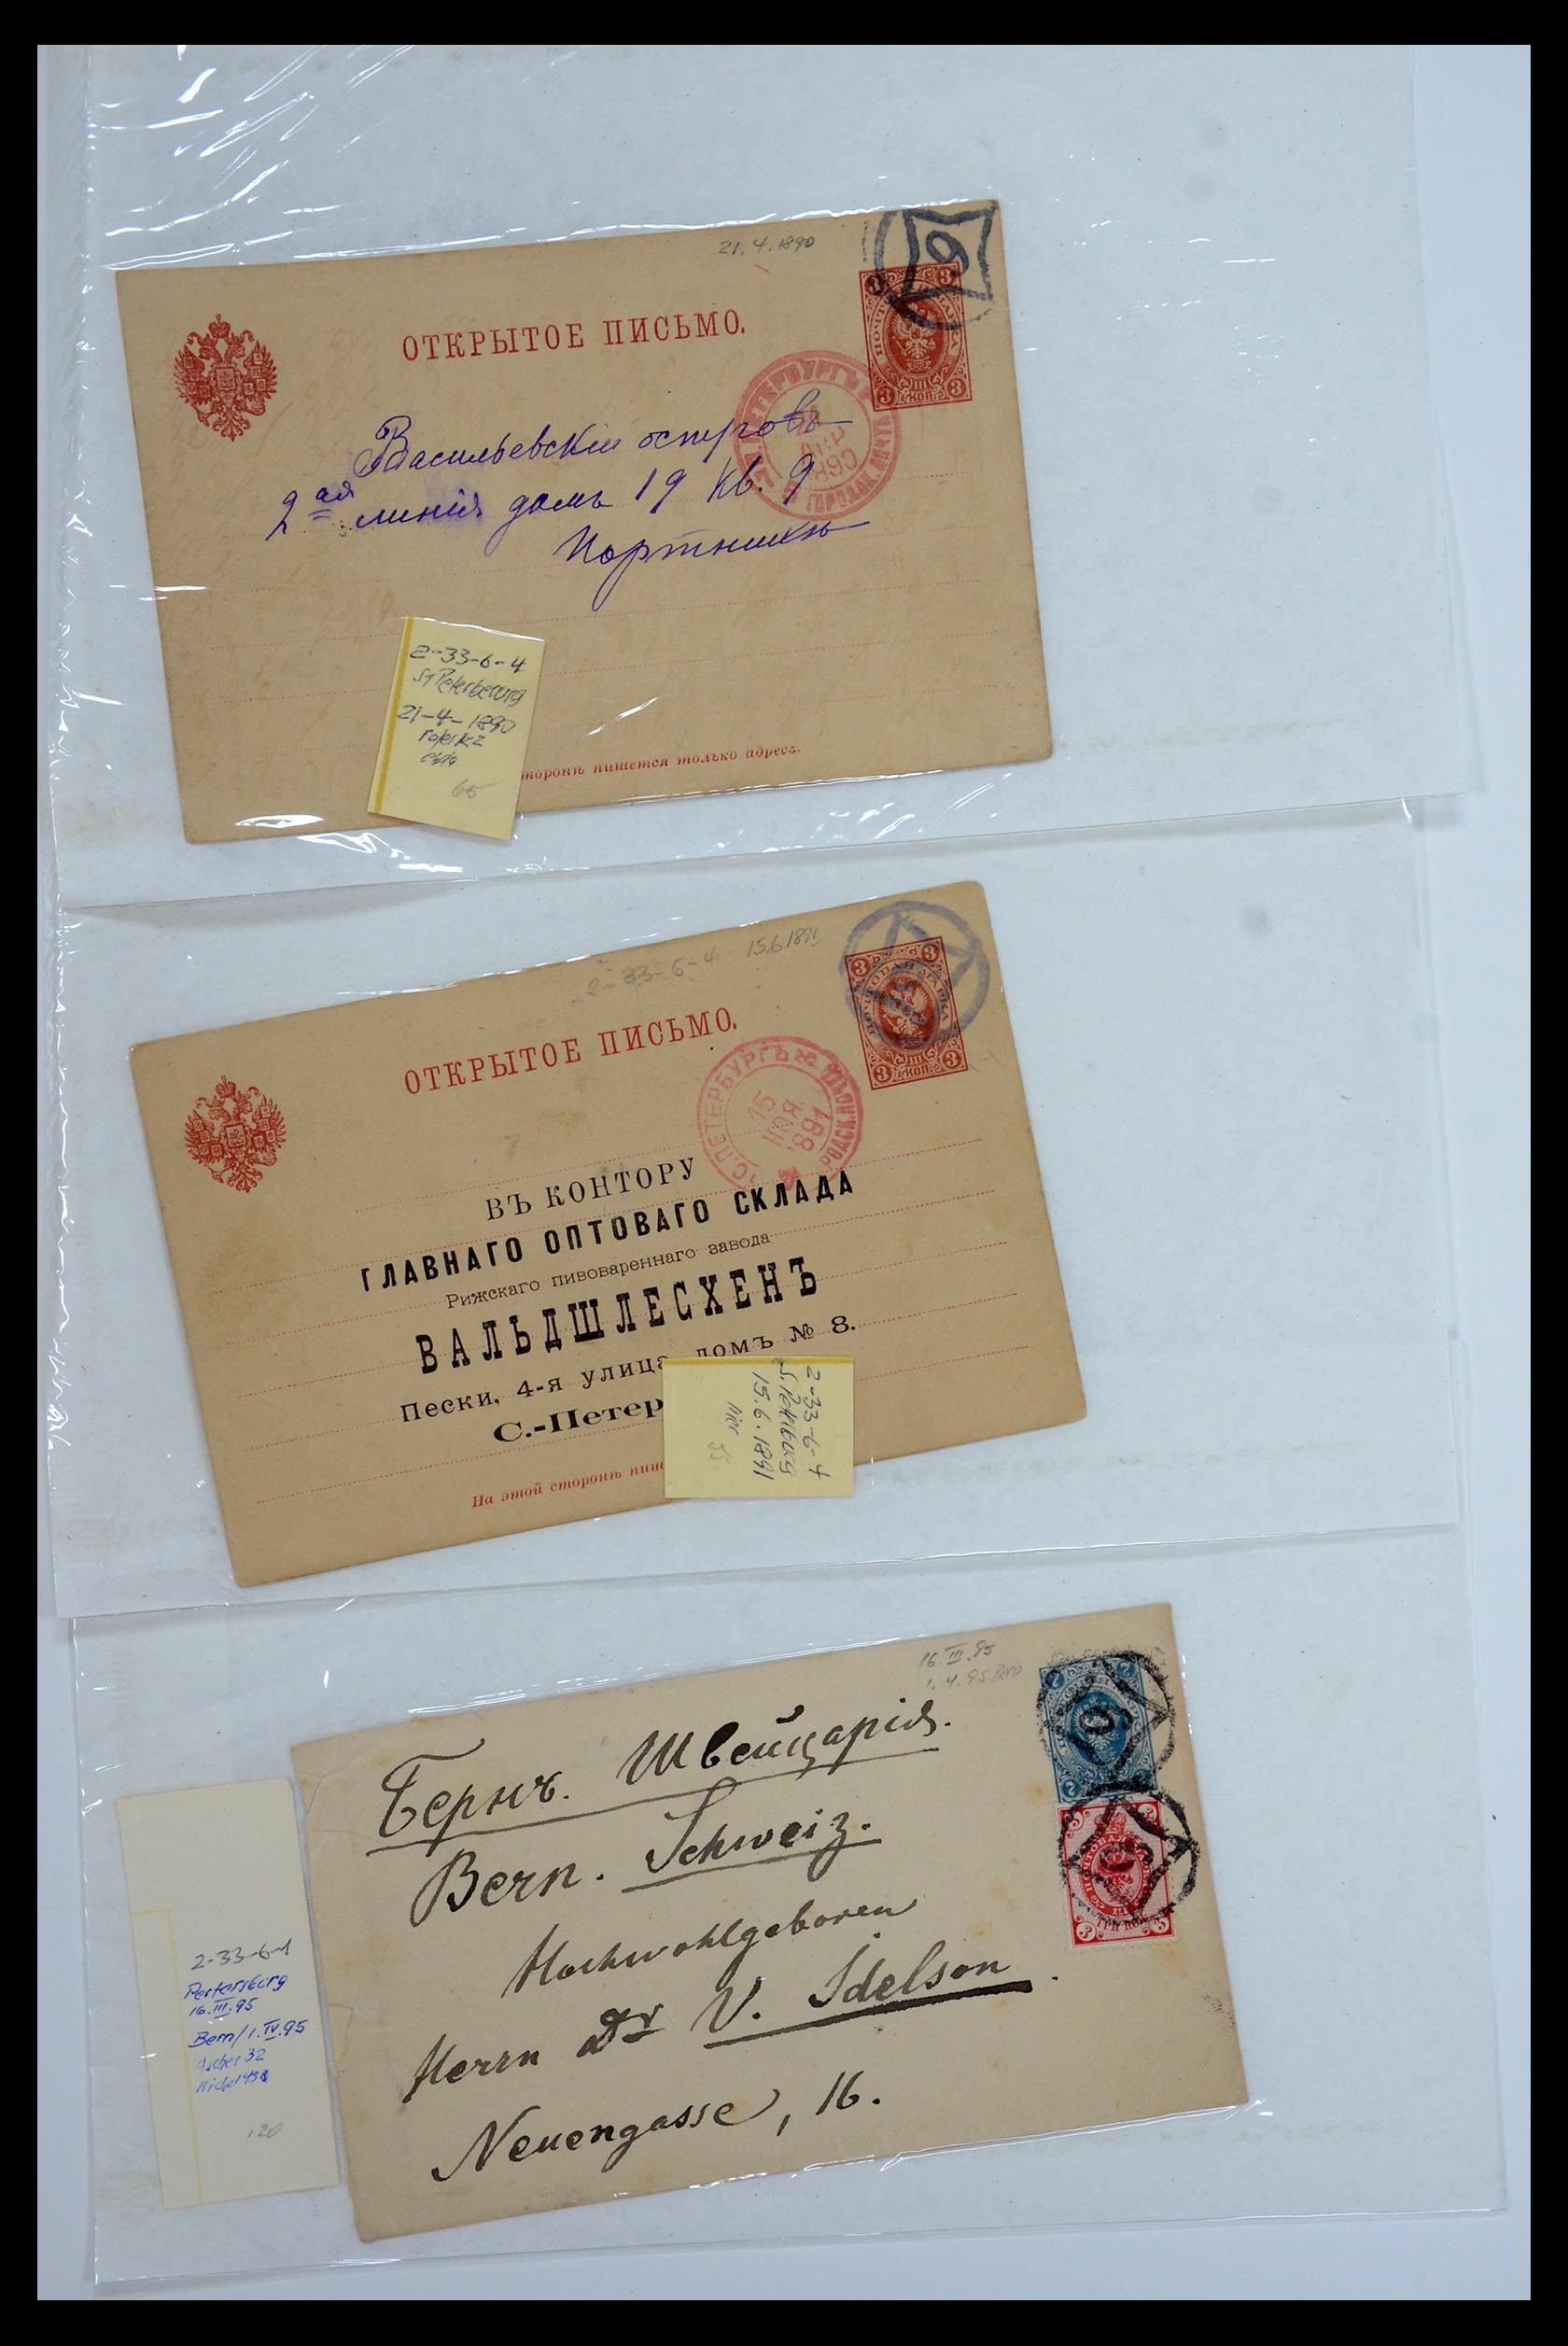 21.4.1890
6
ОТКРЫТОЕ ПИСЬМО.
ПОЧТОВАЯ МАРКА
3 3
III
3 КОП. 3
Васильевскiй островъ
2ая линiя домъ 19 кв. 9
2-33-6-4
St Peterbourg
21-4-1890
65
сторонѣ пишется только адресъ.
2-33-6-4 15.6.1891
ОТКРЫТОЕ ПИСЬМО.
3 3
ПОЧТОВАЯ МАРКА
III
3 КОП. 3
С.ПЕТЕРБУРГЪ
15
1891
ВЪ КОНТОРУ
ГЛАВНАГО ОПТОВАГО СКЛАДА
Рижскаго пивовареннаго завода
ВАЛЬДШЛЕСХЕНЪ
Пески, 4-я улица, домъ № 8.
С.-Петер
На этой сторонѣ пише
2-33-6-4
St. Petersbourg
15.6.1891
16.III.95
1.4.95 Bern
Бернъ. Швейцарiя.
Bern. Schweiz.
Hochwohlgeboren
Herrn Dr V. Idelson
Neuengasse, 16.
2-33-6-1
Petersburg
16.III.95
Bern/1.IV.95
Ascher 32
120